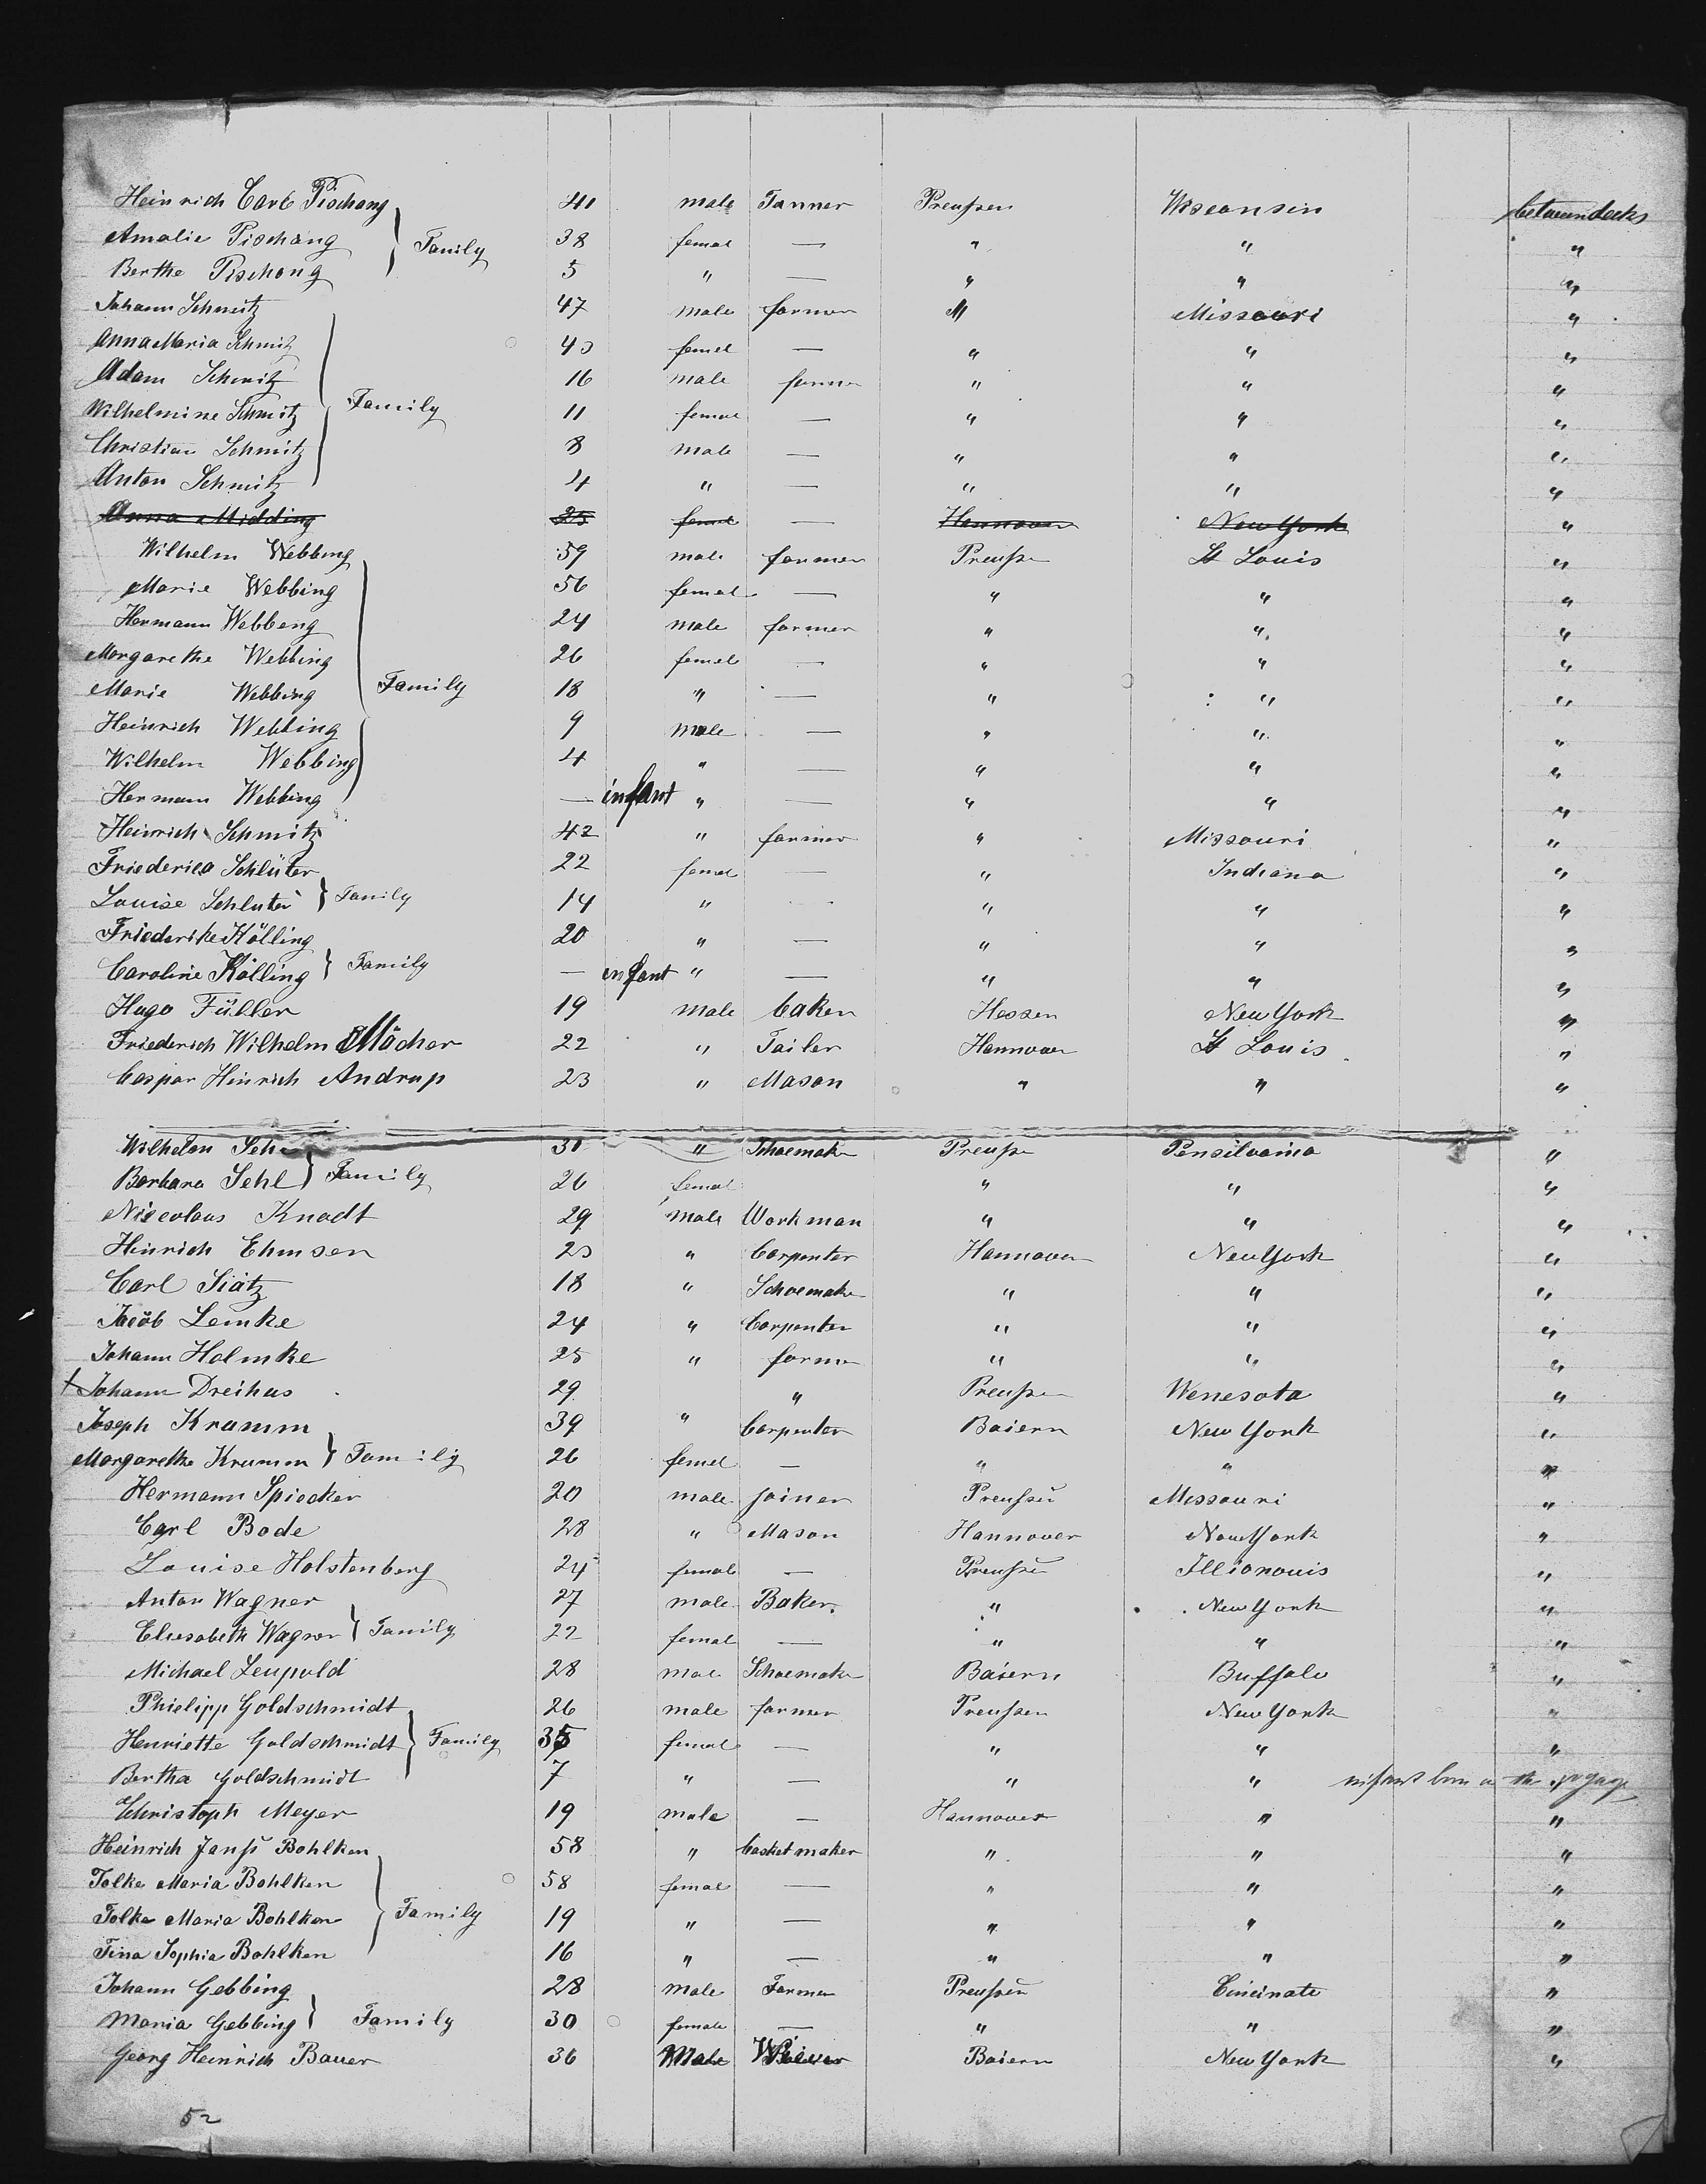 Heinrich Carl Pischang 41 male Tanner Preußen Wisconsin betweendecks
Amalie Pischang } Family 38 femal — " " "
Berthe Pischong 5 " — " " "
Johann Schmitz 47 male farmer " Missouri "
Anna Maria Schmitz 40 femal — " " "
Adam Schmitz 16 male farmer " " "
Wilhelmine Schmitz } Family 11 femal — " " "
Christian Schmitz 8 male — " " "
Anton Schmitz 4 " — " " "
Anna Midding 25 femal — Hannover New York "
Wilhelm Webbing 59 male farmer Preuße St Louis "
Marie Webbing 56 femal — " " "
Hermann Webbeng 24 male farmer " " "
Margarethe Webbing 26 femal — " " "
Marie Webbing } Family 18 " — " " "
Heinrich Webbing 9 male — " " "
Wilhelm Webbing 4 " — " " "
Hermann Webbing — infant " — " " "
Heinrich Schmitz 42 " farmer " Missouri "
Friederica Schlüter 22 femal — " Indiana "
Louise Schluter } Family 14 " — " " "
Friederike Kölling 20 " — " " "
Caroline Kölling } Family — infant " — " " "
Hugo Füller 19 male baker Hessen New York "
Friederich Wilhelm Mächer 22 " Tailer Hannover St Louis "
Caspar Hinrich Andrup 23 " Mason " " "
Wilhelm 30 " Schoemaker Preuße Pensilvania "
Barbara Sehl } Family 26 femal " " "
Niecolaus Knadt 29 male Workman " " "
Hinrich Ehmsen 23 " Carpenter Hannover New York "
Carl Siätz 18 " Schoemaker " " "
Jacob Lemke 24 " Carpenter " " "
Johann Holmke 25 " farmer " " "
+ Johann Dreihus 29 " Preußen Wenesota "
Joseph Kramm 39 " Carpenter Baiern New York "
Margarethe Kramm } Family 26 femel — " " "
Hermann Spiecker 20 male joiner Preußen Missouri "
Carl Bode 28 " Mason Hannover New York "
Louise Holstenberg 24 femal — Preußen Illionouis "
Anton Wagner 27 male Baker " New York "
Eliesabeth Wagner } Family 22 femal — " " "
Michael Leupold 28 male Schoemaker Baiern Buffalo "
Phielipp Goldschmidt 26 male farmer Preußen New York "
Henriette Goldschmidt } Family 35 femal — " " "
Bertha Goldschmidt 7 " — " " infant born on the
Christoph Meyer 19 male — Hannover " "
Heinrich Janß Bohlken 58 " basketmaker " " "
Tolke Maria Bohlken 58 femal — " " "
Tolke Maria Bohlken } Family 19 " — " " "
Tina Sophia Bohlken 16 " — " " "
Johann Gebbing 28 male Farmer Preußen Cincinate "
Maria Gebbing } Family 30 female — " " "
Georg Heinrich Bauer 36 Male Baiern New York "
52